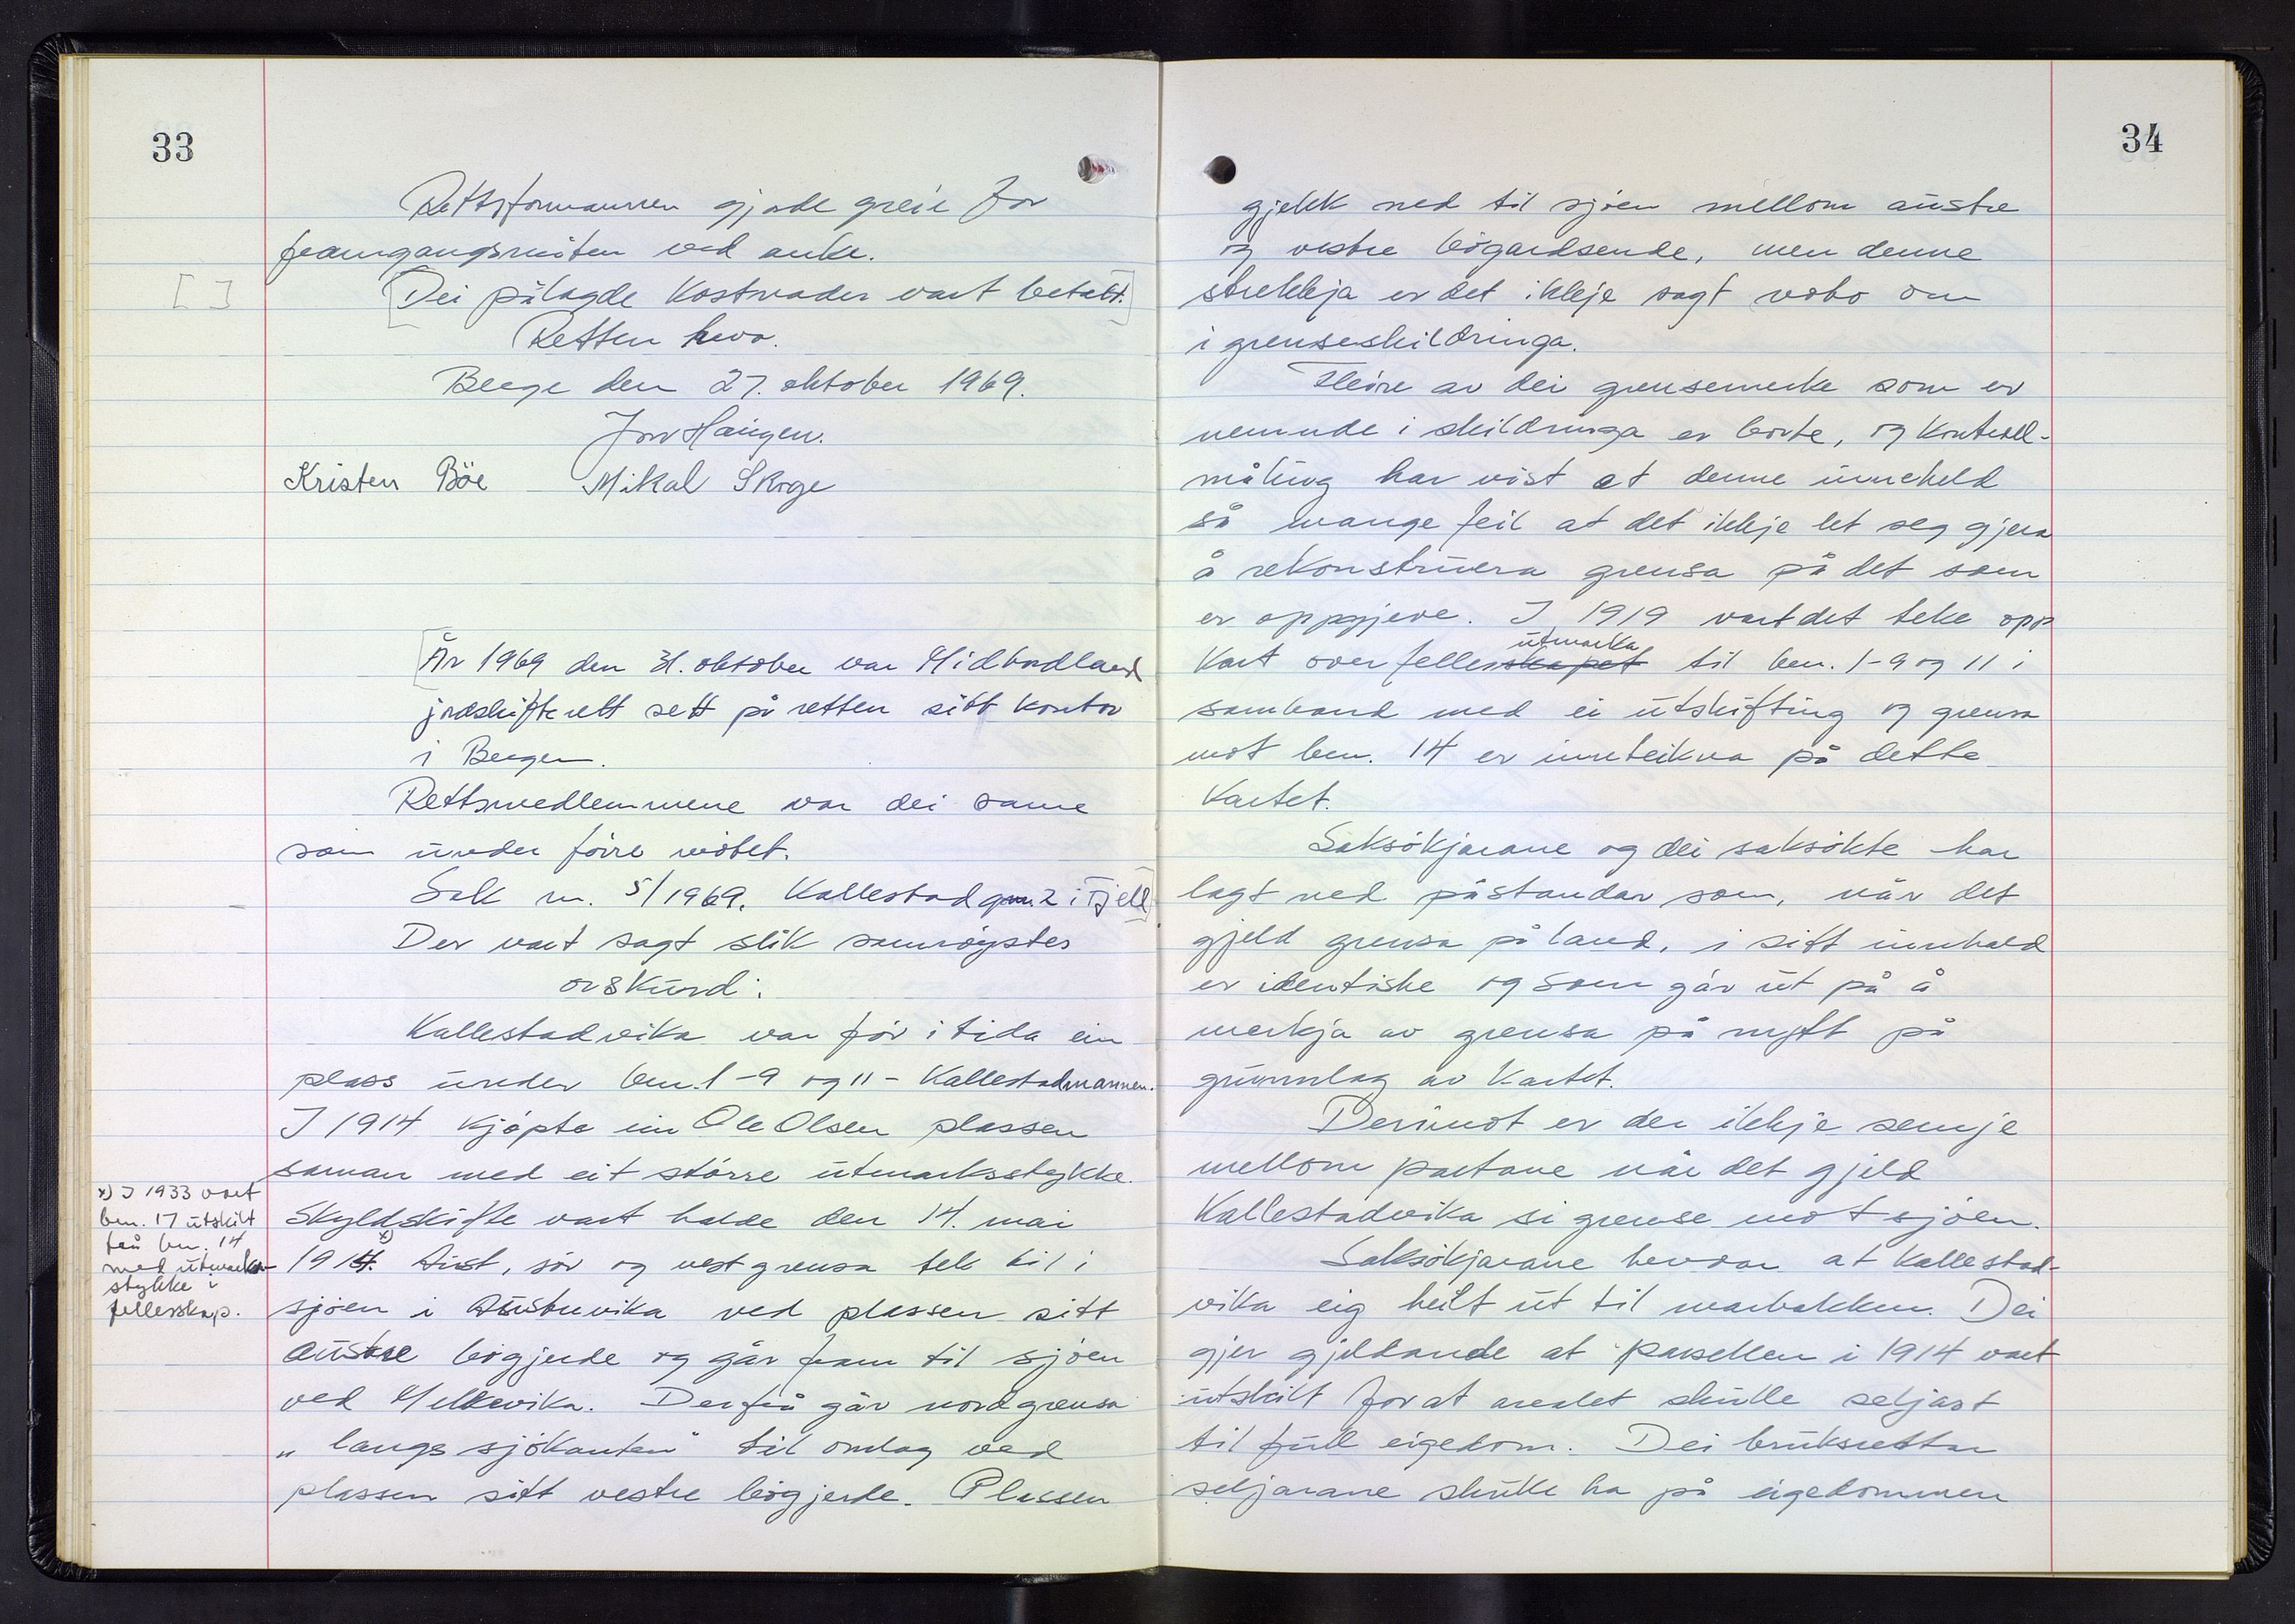 33
Rettsformannen gjorde greie for
framgangsmåten ved anke.
[ ]
[Dei pålagde kostnader vart betalt.]
Retten heva.
Berge den 27. oktober 1969.
Jon Haugen.
Kristen Böe Mikal Skoge
[År 1969 den 31. oktober var Midhordland
jordskifterett sett på retten sitt kontor
i Bergen.
Rettsmedlemmene var dei same
som under förre mötet.
Sak nr. 5/1969. Kallestad gnr. 2 i Fjell]
Der vart sagt slik samröystes
orskurd:
Kallestadvika var för i tida ein
plass under bnr. 1-9 og 11 - Kallestadmannen.
I 1914 kjöpte ein Ole Olsen plassen
saman med eit större utmarksstykke.
Skyldskifte vart halde den 14. mai
1914. x) Aust, sör og vestgrensa tek til i
sjöen i Austrevika ved plassen sitt
austre bögjerde og går fram til sjöen
ved Mellevika. Derfrå går nordgrensa
„langs sjökanten" til omlag ved
plassen sitt vestre bögjerde. Plassen
x) I 1933 vart
bnr. 17 utskilt
frå bnr. 14
med utmarks-
stykke i
fellesskap.
34
gjekk ned til sjöen mellom austre
og vestre bögardsende, men denne
strekkja er det ikkje sagt noko om
i grenseskildringa.
Fleire av dei grensemerke som er
nemnde i skildringa er borte, og kontroll-
måling har vist at denne inneheld
så mange feil at det ikkje let seg gjera
å rekonstruera grensa på det som
er oppgjeve. I 1919 vart det teke opp
utmarka
kart over fellesskapet til bnr. 1-9 og 11 i
samband med ei utskifting og grensa
mot bnr. 14 er innteikna på dette
kartet.
Saksökjarane og dei saksökte har
lagt ned påstandar som, når det
gjeld grensa på land, i sitt innhald
er identiske og som går ut på å
merkja av grensa på nytt på
grunnlag av kartet.
Derimot er der ikkje semje
mellom partane når det gjeld
Kallestadvika si grense mot sjöen.
Saksökjarane hevdar at Kallestad-
vika eig heilt ut til marbakken. Dei
gjer gjeldande at parsellen i 1914 vart
utskilt for at arealet skulle seljast
til full eigedom. Dei bruksrettar
seljarane skulle ha på eigedommen